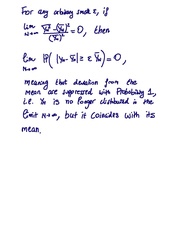 For any arbitrary small ε, if
lim_{N→∞} \frac{\overline{y_N^2} - (\overline{y_N})^2}{(\overline{y_N})^2} = 0, then
lim_{N→∞} P( |y_N - \overline{y_N}| ≥ ε \overline{y_N} ) = 0,
meaning that deviation from the
mean are suppressed with Probability 1,
i.e. y_N is no longer distributed in the
limit N→∞, but it coincides with its
mean.